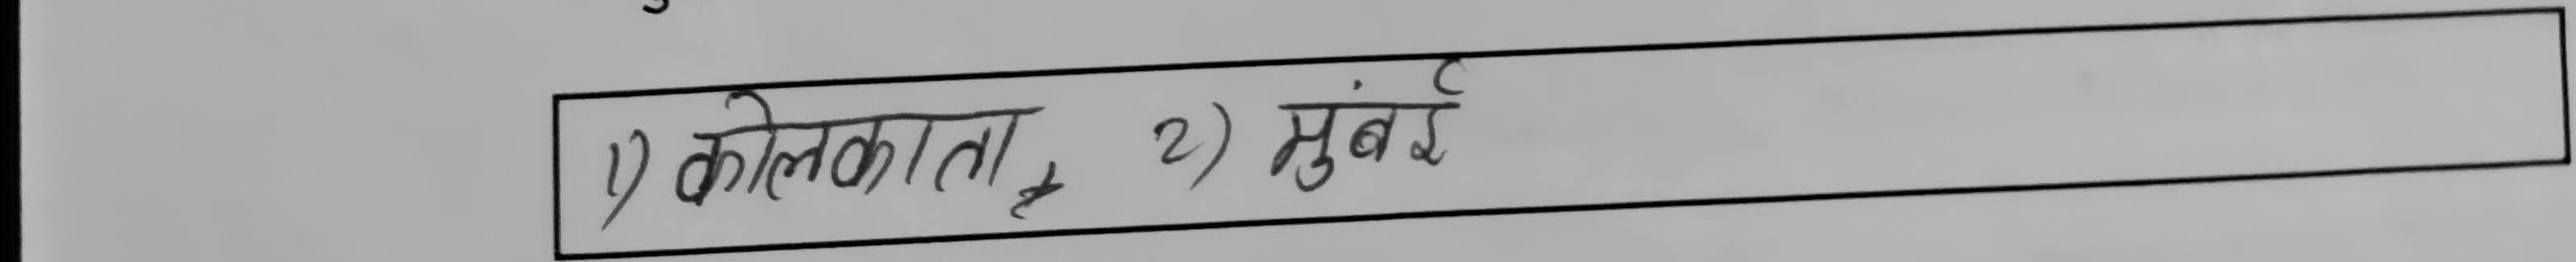 1) कोलकाता, 2) मुंबई